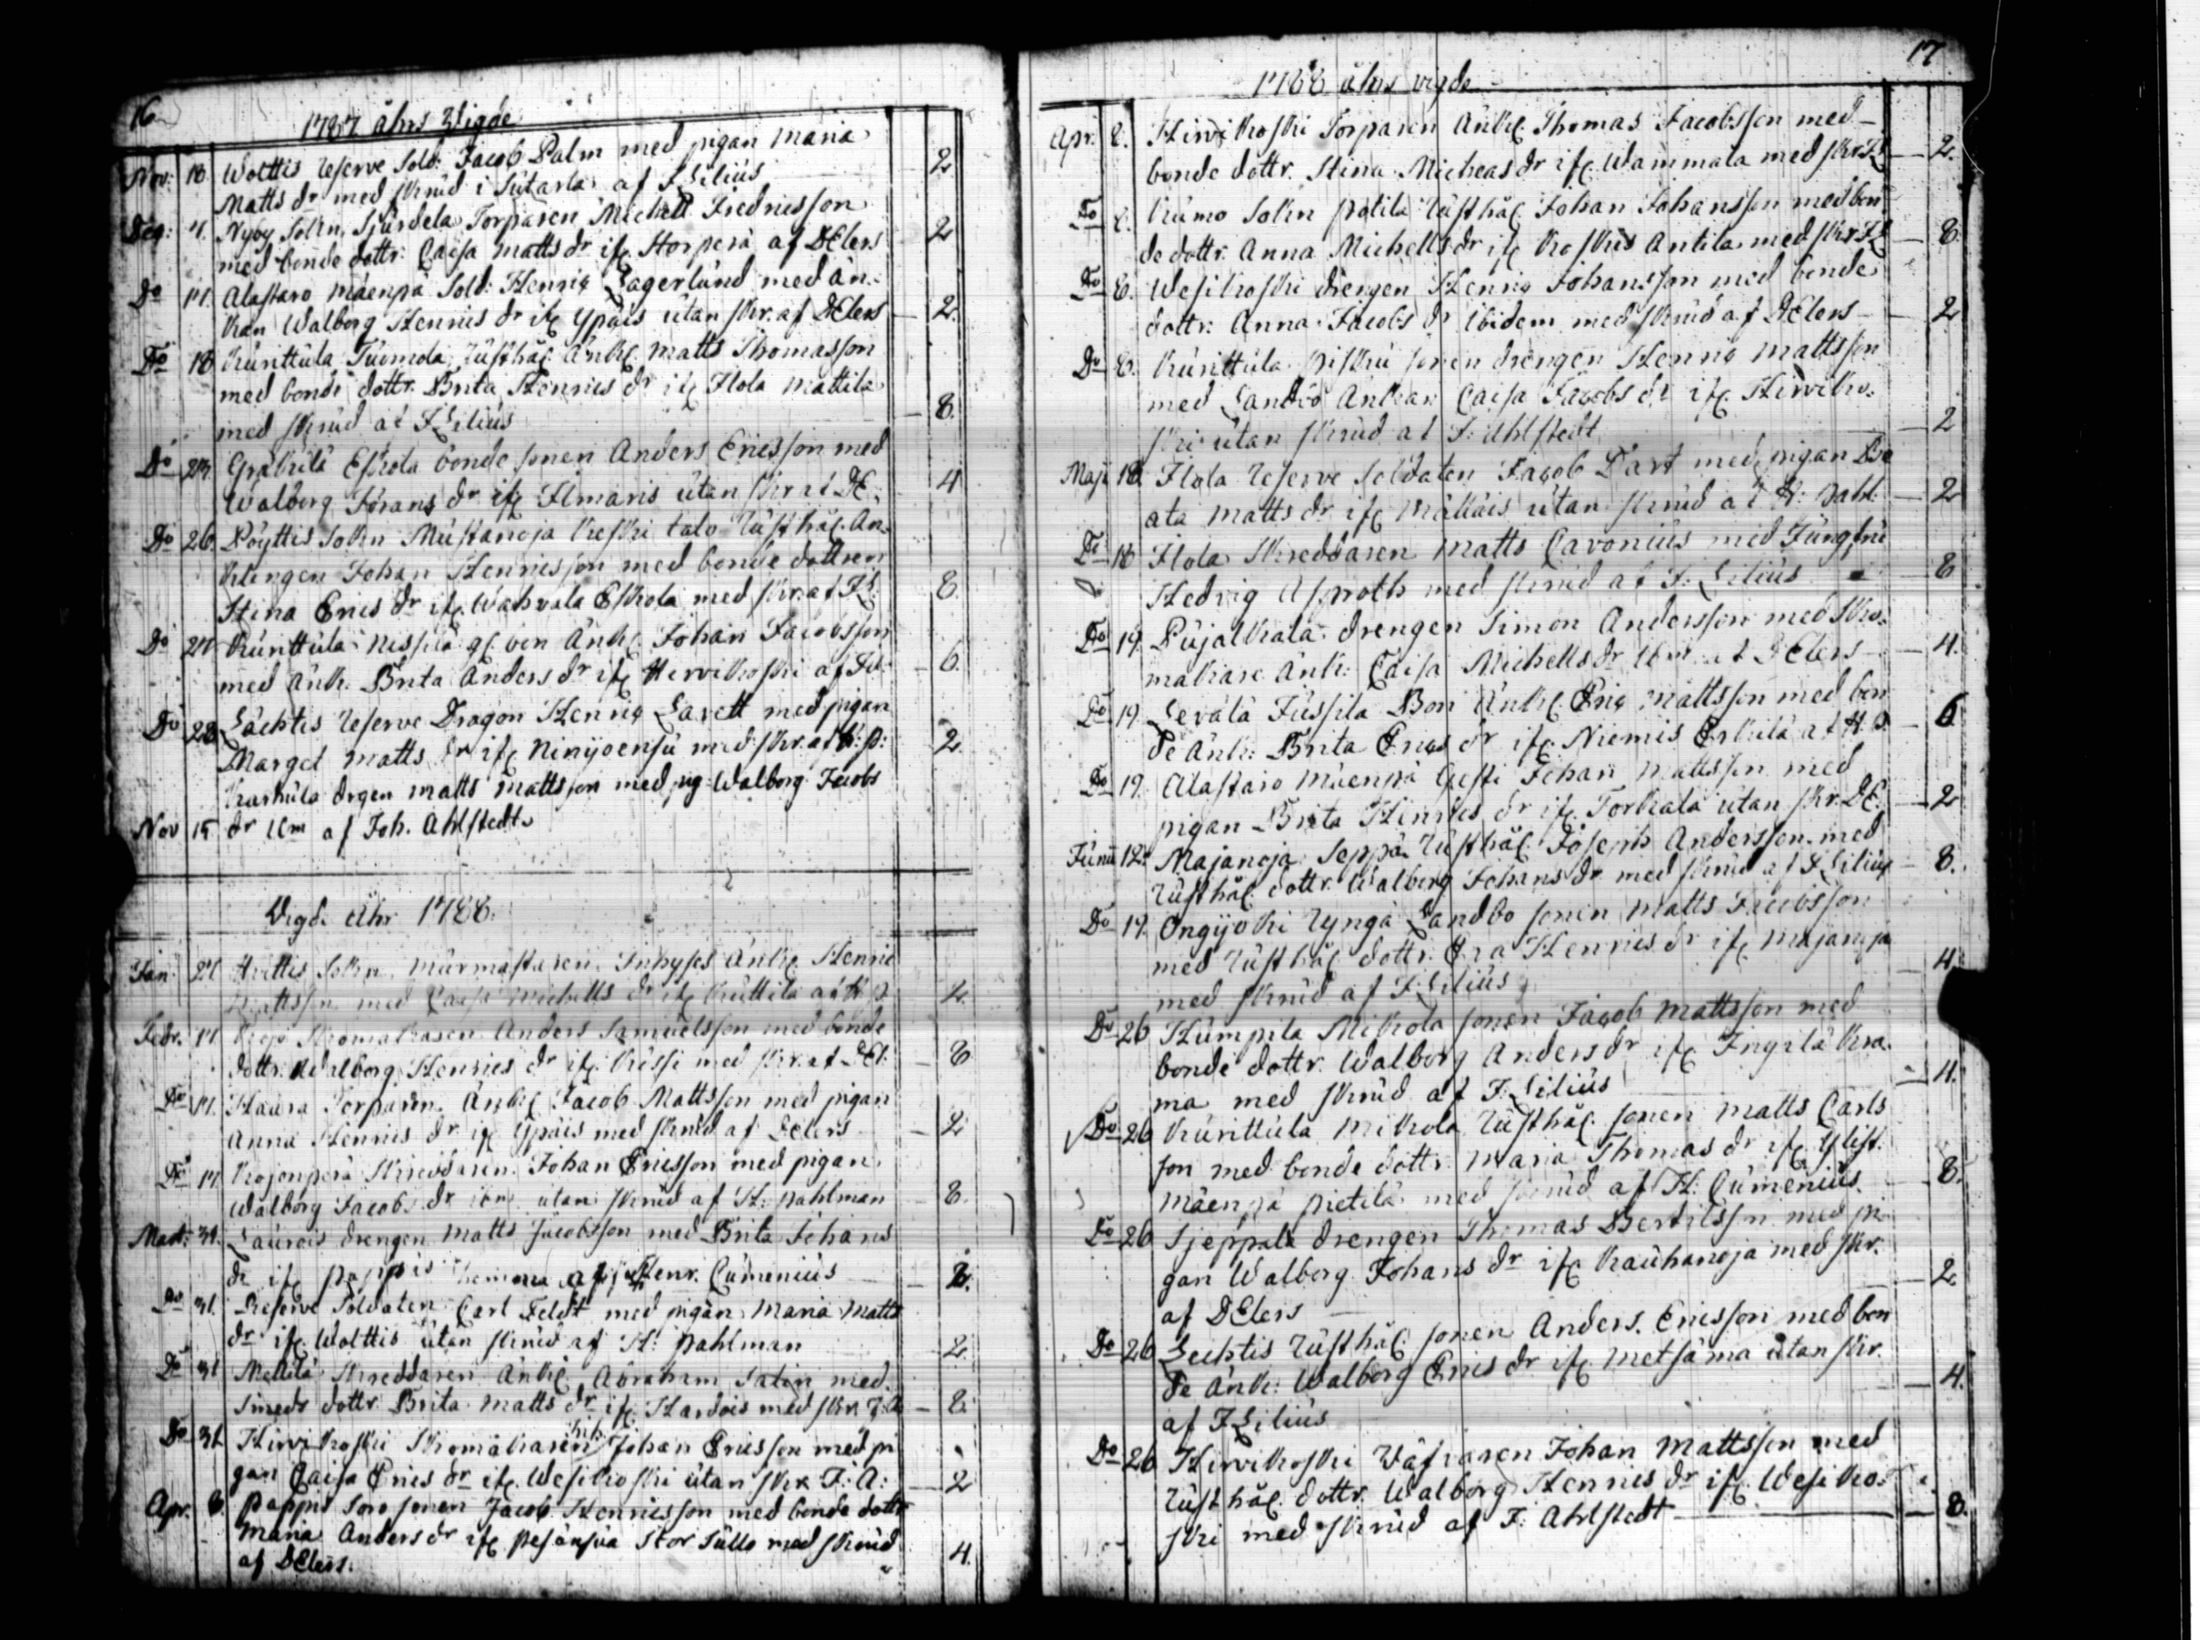 16
1787 åhrs Vigde
Nov: 18. Wolttis reserve Sold: Jacob Palm med pigan Maria 2
Matts dr med skrud i Sutarla af F Lilius
Dec: 4. Nyby Sokn, Sjundela Torparen Michell Fredricsson 2
med bonde dottr. Caisa Matts dr if Storperä af DElers
Do 14. Alastaro Mäenpä Sold: Henric Lagerlund med än-
kan Walborg Henrics dr if Ypäis utan skr. af DElers 2.
Do 18 Kurittula Tuomola Rusthål. Änkl. Matts Thomasson
med bonde dottr. Brita Henrics dr if Ilola Mattila
med skrud af F Lilius 8.
Do 23. Eskola bonde sonen Anders Ericsson med
Walborg Jörans dr if Ilmaris utan skr af DE: 4
Do 26. Pöyttis Sokn Mustanoja Keski talo Rusthål. Än-
klingen Johan Henricsson med bonde dottren
Stina Erics dr if Wahvala Eskola med skr. af FL 8.
Do 27. Kurittula Nissilä Änkl. Johan Jacobsson
med Änk. Brita Anders dr if Hirvikoski af 6.
Do 28 Lächtis reserve Dragon Henric Lavett med pigan
Marget Matts dr if Ninijoensu med skr. af H: P: 2
Karhula drgen Matts Mattsson med pig Walborg Jacobs
Nov 15 dr ibm af Joh. Ahlstedt.
Vigde Åhr 1788.
Jan. 27. Hvittis Sokn. Murmästaren Änkl. Henric
Mattsson med Caisa Michells dr if Kuttila af H P. 2.
Febr. 17. Skomakaren Anders Samuelsson med bonde
dottr. Walborg Henrics dr if med skr. af DEl. 8
Do 17. Haura Torparen Änkl. Jacob Mattsson med pigan
Anna Henrics dr if Ypäis med skrud af DElers 2
Do 17. Kojonperä Skreddaren Johan Ericsson med pigan
Walborg Jacobs dr ibm utan skrud af H: Pahlman 8.
Mart: 31. Laurois drengen Matts Jacobsson med Brita Johans
dr if Pappis af Henr. Cumenius 2.
Do 31. Reserve Soldaten Carl Feldt med pigan Maria Matts
dr if Wolttis utan skrud af H: Pahlman 2
Do 31 Mellilä Skreddaren Änkl. Abraham Satin med
smeds dottr. Brita Matts dr if Hardois med skr. F: A 8.
Do 31. Hirvikoski Skomakaren Johan Ericsson med pi
gan Caisa Erics dr if Wesikoski utan skr F: A: 2
Apr. 8 Pappis sonen Jacob Henricsson med bonde dottr
Maria Anders dr if Pesänsua Stor Sullo med skrud
af DElers. 4.
17
1788 åhrs vigde
Apr. 8. Hirvikoski Torparen Änkl. Thomas Jacobsson med
bonde dottr. Stina Micheas dr if Wammala med skr FL 2.
Do 8. Kumo Sokn Rusthål. Johan Johansson med bon
de dottr. Anna Michells dr if Koskis Antila med skr FL 8.
Do 8. Wesikoski drengen Henric Johansson med bonde
dottr: Anna Jacobs dr ibidem med skrud af DElers 2
Do 8. Kurittula sonen drengen Henric Mattsson
med Landbo Änkan Caisa Jacobs dr if Hirviko-
ski utan skrud af F: Ahlstedt 2
Maji 18. Ilola reserve Soldaten Jacob Dart med pigan Be
ata Matts dr if Mällais utan skrud af H: Pahl: 2
Do 18 Ilola Skreddaren Matts Cavonius med Jungfru
Hedvig Asproth med skrud af F: Lilius 8
Do 19 Pujalkala drengen Simon Andersson med Sko-
makare Änk: Caisa Michells dr ibm af DElers 4.
Do 19. Levälä Jussila Bon Änkl. Eric Mattsson med bon
de Änk: Brita Erics dr if Niemis Erkilä af H P 6
Do 19. Alastaro Mäenpä Gusti Johan Mattsson med
pigan Brita Henrics dr if Torkala utan skr. DE. 2
Junii 12. Majanoja Seppä Rusthål. Joseph Andersson med
Rusthål. dottr. Walborg Johans dr med skrud af F Lilius 8.
Do 19. Ongijoki Ryngä Landbo sonen Matts Jacobsson
med Rusthål. dottr. Eva Henrics dr if Majanoja
med skrud af F: Lilius 4.
Do 26 Humpila Mikola sonen Jacob Mattsson med
bonde dottr. Walborg Anders dr if
ma med skrud af F. Lilius 4.
Do 26 Kurittula Mikola Rusthål. sonen Matts Carls
son med bonde dottr. Maria Thomas dr if
Mäenpä Pietilä med skrud af H: Cumenius 8.
Do 26 Sjeppälä drengen Thomas Bertilsson med pi
gan Walborg Johans dr if Kauhanoja med skr.
af DElers 2
Do 26 Lechtis Rusthål. sonen Anders Ericsson med bon
de Änk: Walborg Erics dr if Metsäma utan skr.
af F Lilius 4.
Do 26 Hirvikoski Väfvaren Johan Mattsson med
Rusthål. dottr. Walborg Henrics dr if Wesiko-
ski med skrud af F: Ahlstedt 8.